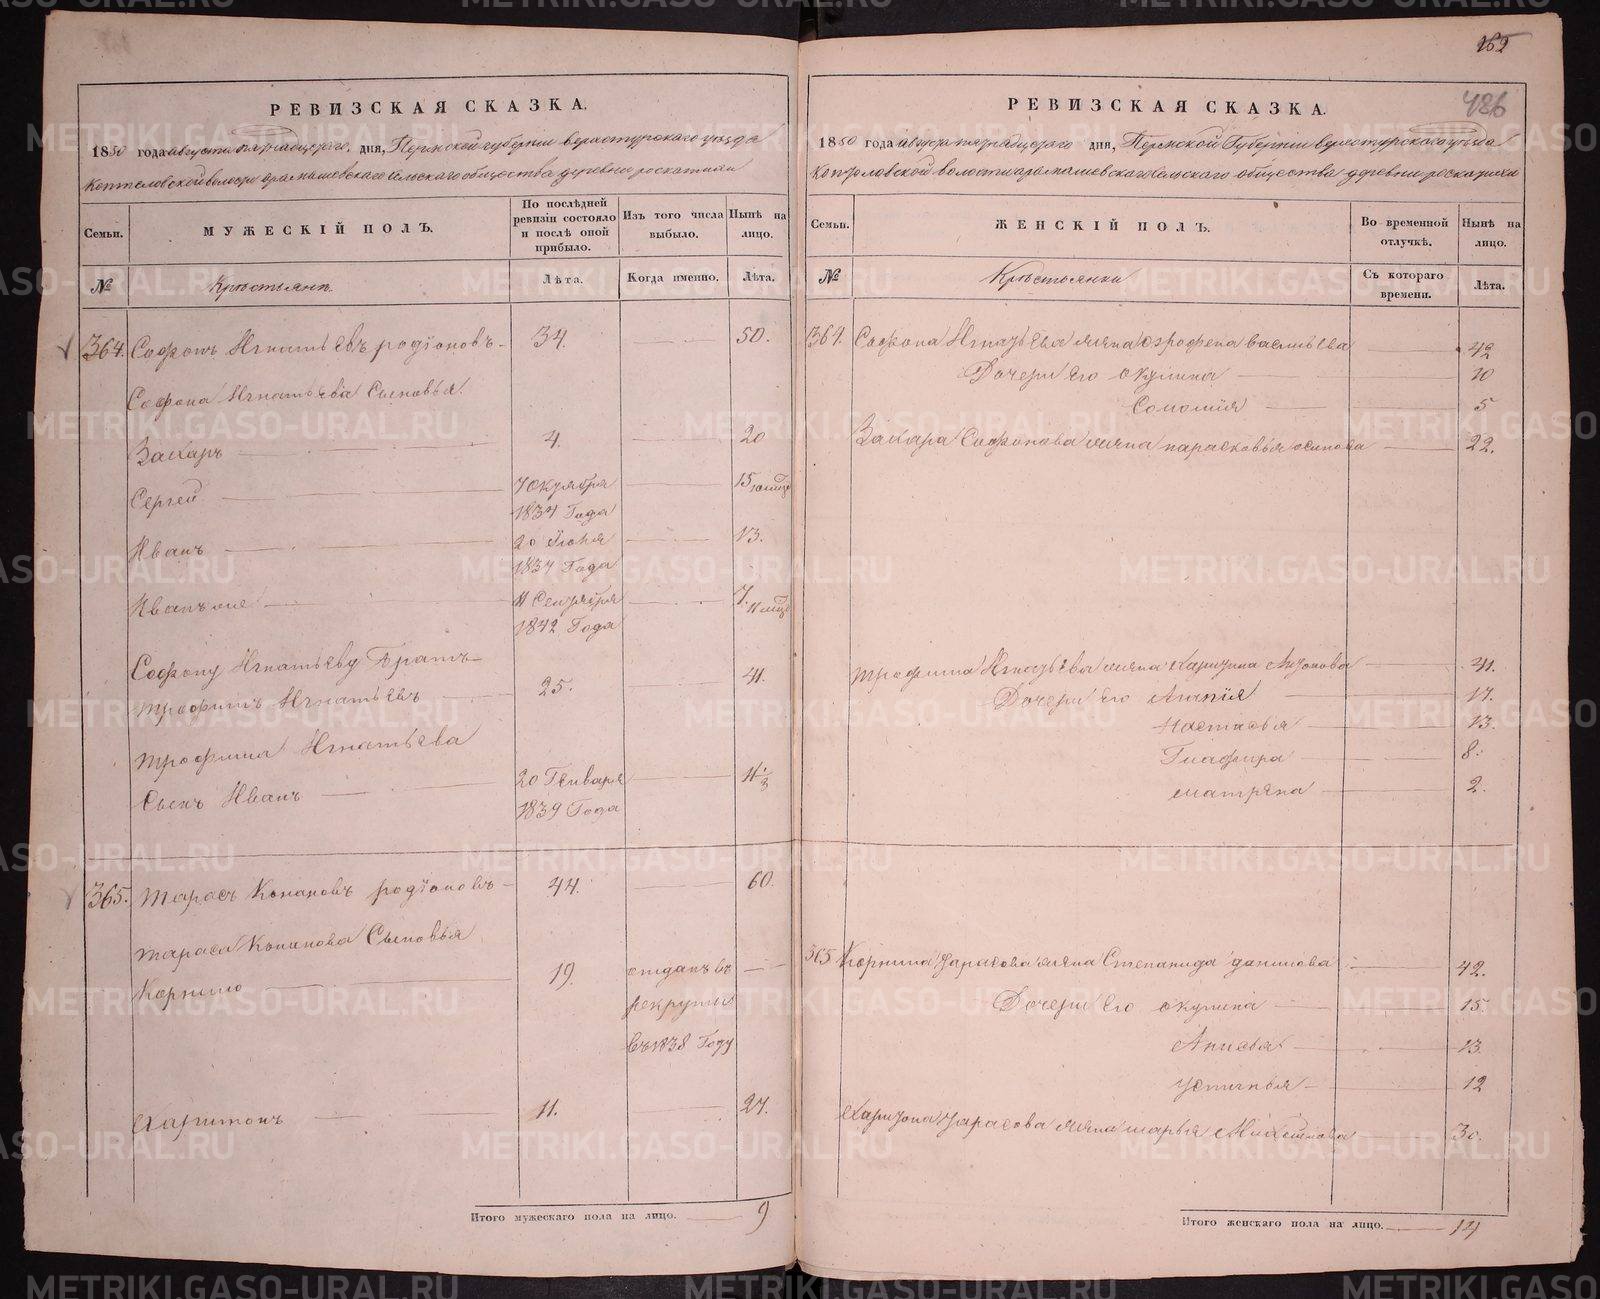 РЕВИЗСКАЯ СКАЗКА.
1850 года августа пятнадцатаго дня, Пермской губернии верхотурскаго уѣзда
Коптеловской волости арамашевскаго сельскаго общества деревни роскатихи
Семьи.
МУЖЕСКІЙ ПОЛЪ.
По послѣдней ревизіи состояло и послѣ оной прибыло.
Изъ того числа выбыло.
Нынѣ на лицо.
№
Крестьяне
Лѣта.
Когда именно.
Лѣта.
364. Софонъ Игнатьевъ родіоновъ 34. 50.
Софона Игнатьева Сыновья
Захаръ 4. 20
Сергей 7 октября 1834 Года 15
Иванъ 20 Июня 1837 Года 13.
Иванъ 11 Сентября 1842 Года 7.
Софону Игнатьеву Братъ
трофимъ Игнатьевъ 25. 41.
трофима Игнатьева
Сынъ Иванъ 20 Генваря 1839 Года 11
365. тарасъ Кононовъ родіоновъ 44. 60.
тараса Кононова Сыновья
Корнило 19. отданъ въ рекруты въ 1838 Году
Харитонъ 11. 27.
Итого мужескаго пола на лицо. 9
262
486
РЕВИЗСКАЯ СКАЗКА.
1850 года августа пятнадцатаго дня, Пермской Губернии верхотурскаго уѣзда
Коптеловской волости арамашевскаго сельскаго общества деревни роскатихи
Семьи.
ЖЕНСКІЙ ПОЛЪ.
Во временной отлучкѣ.
Нынѣ на лицо.
№
Крестьянки
Съ котораго времени.
Лѣта.
364. Софона Игнатьева жена васильева 42
Дочери его окулина 10
Соломия 5
Захара Софонова жена парасковья осипова 22.
трофима Игнатьева жена Харитина 41.
Дочери его 17.
настасья 13.
Глафира 8.
матрена 2.
365 Корнила тарасова жена Степанида данилова 42.
Дочери его окулина 15.
Анисья 13.
устинья 12
Харитона тарасова жена марья 30.
Итого женскаго пола на лицо. 14
METRIKI.GASO-URAL.RU